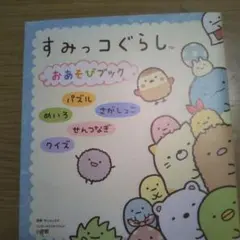 すみっコぐらし
おあそびブック
パズル
めいろ
さがしっこ
せんつなぎ
クイズ